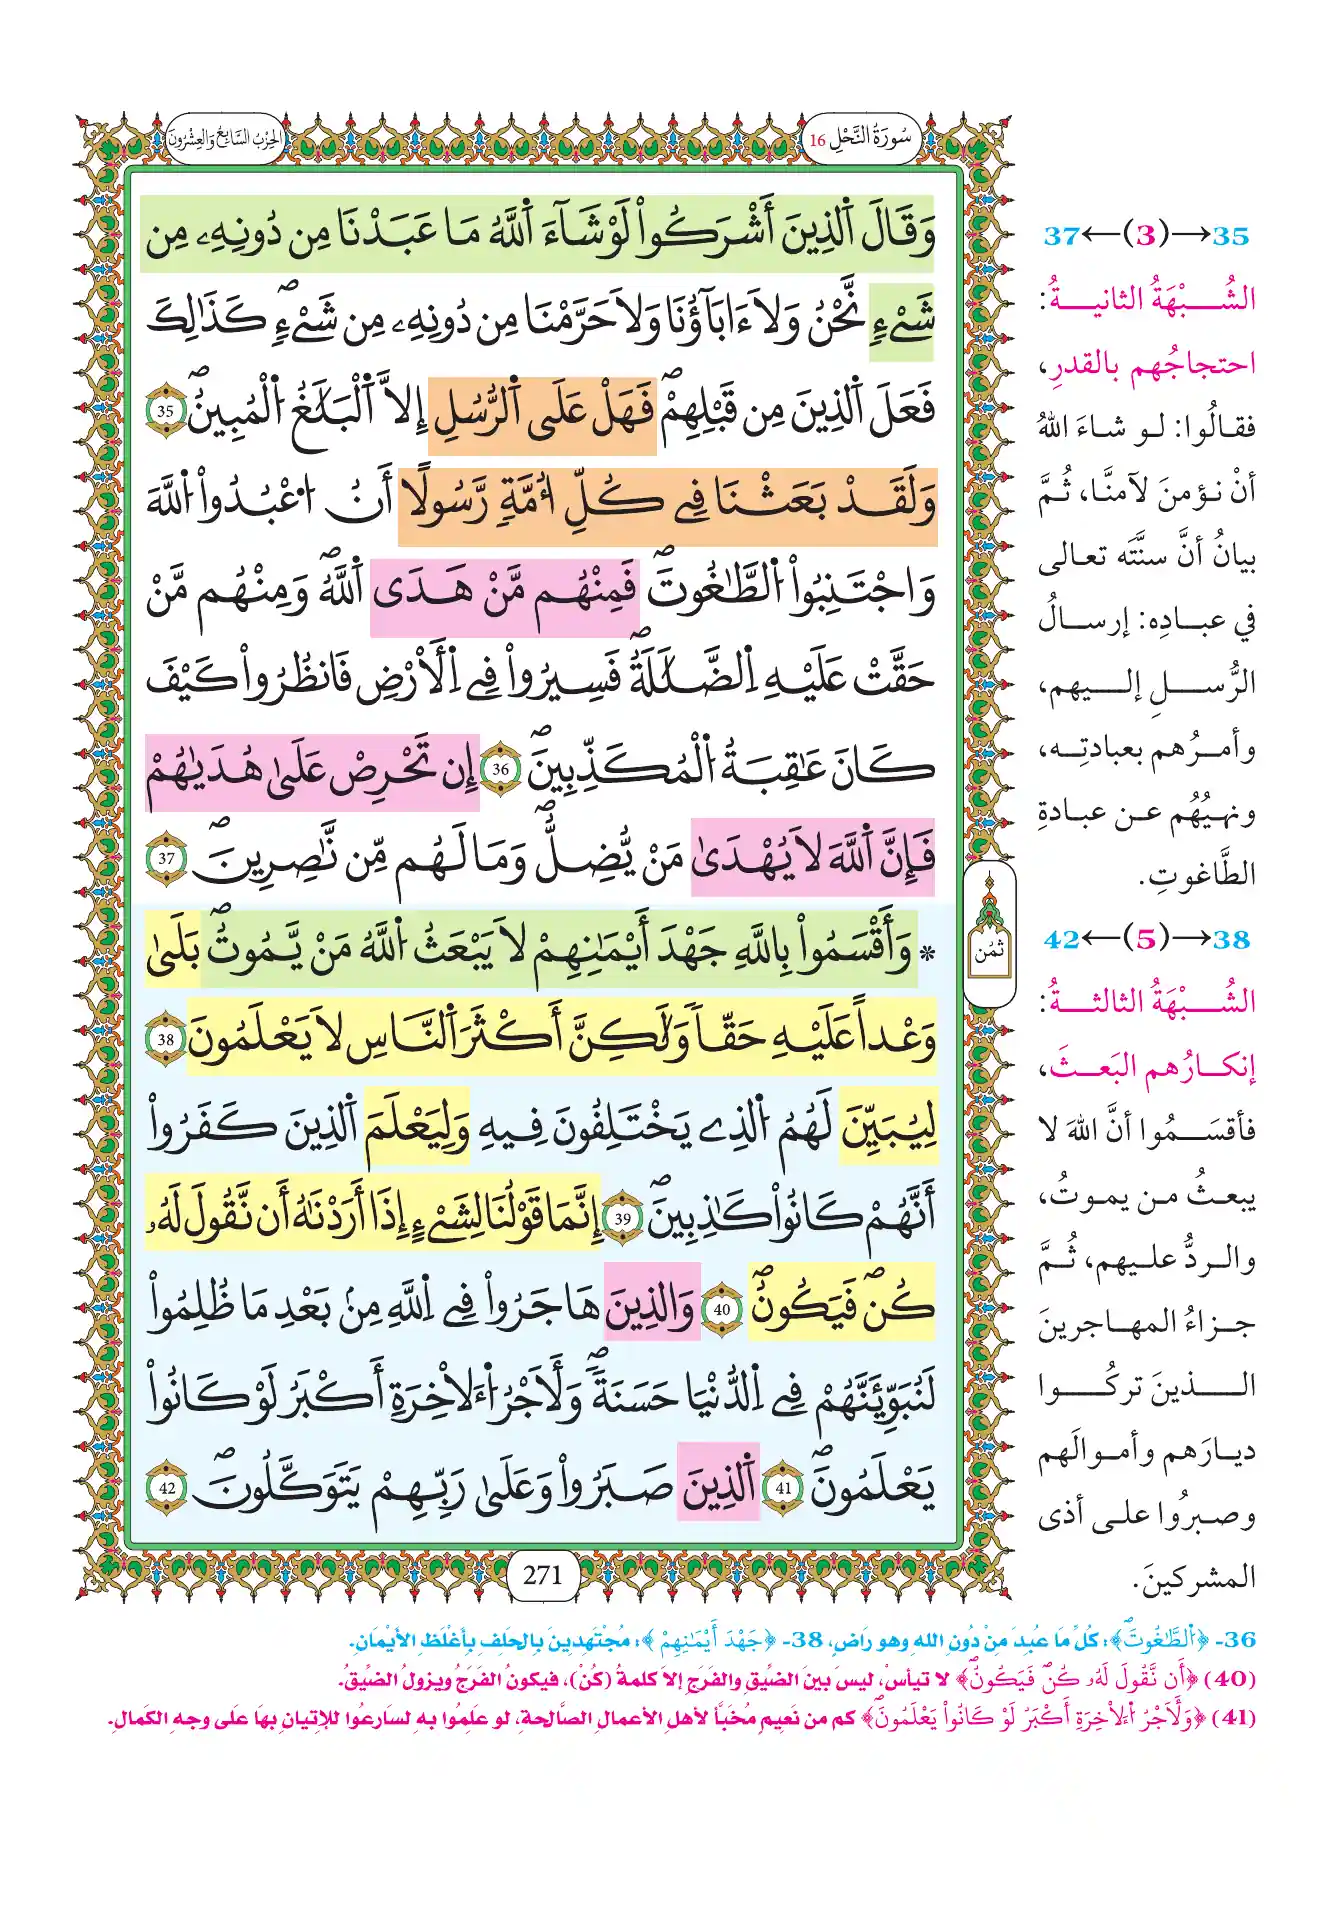 سُورَةُ النَّحْلِ 16
الحِزْبُ السَّابِعُ وَالعِشْرُونَ
وَقَالَ اَ۬لذِينَ أَشْرَكُواْ لَوْ شَآءَ اَ۬للَّهُ مَا عَبَدْنَا مِن دُونِهِۦ مِن
شَےْءٖ نَّحْنُ وَلَآ ءَابَآؤُنَا وَلَا حَرَّمْنَا مِن دُونِهِۦ مِن شَےْءٖۖ كَذَٰلِكَ
فَعَلَ اَ۬لذِينَ مِن قَبْلِهِمْۖ فَهَلْ عَلَى اَ۬لرُّسُلِ إِلَّا اَ۬لْبَلَٰغُ اُ۬لْمُبِينُۖ 35
وَلَقَدْ بَعَثْنَا فِے كُلِّ أُمَّةٖ رَّسُولًا أَنُ اُ۟عْبُدُواْ اُ۬للَّهَ
وَاجْتَنِبُواْ اُ۬لطَّٰغُوتَۖ فَمِنْهُم مَّنْ هَدَى اَ۬للَّهُۖ وَمِنْهُم مَّنْ
حَقَّتْ عَلَيْهِ اِ۬لضَّلَٰلَةُۖ فَسِيرُواْ فِے اِ۬لْأَرْضِ فَانظُرُواْ كَيْفَ
كَانَ عَٰقِبَةُ اُ۬لْمُكَذِّبِينَۖ 36 إِن تَحْرِصْ عَلَىٰ هُدَىٰهُمْ
فَإِنَّ اَ۬للَّهَ لَا يُهْدَىٰ مَنْ يُّضِلُّۖ وَمَا لَهُم مِّن نَّٰصِرِينَۖ 37
* وَأَقْسَمُواْ بِاللَّهِ جَهْدَ أَيْمَٰنِهِمْ لَا يَبْعَثُ اُ۬للَّهُ مَنْ يَّمُوتُۖ بَلَىٰ
وَعْداً عَلَيْهِ حَقّاٗ وَلَٰكِنَّ أَكْثَرَ اَ۬لنَّاسِ لَا يَعْلَمُونَ 38
لِيُبَيِّنَ لَهُمُ اُ۬لذِے يَخْتَلِفُونَ فِيهِ وَلِيَعْلَمَ اَ۬لذِينَ كَفَرُواْ
أَنَّهُمْ كَانُواْ كَٰذِبِينَۖ 39 إِنَّمَا قَوْلُنَا لِشَےْءٍ إِذَا أَرَدْنَٰهُ أَن نَّقُولَ لَهُۥ
كُنۖ فَيَكُونُۖ 40 وَالذِينَ هَاجَرُواْ فِے اِ۬للَّهِ مِنۢ بَعْدِ مَا ظُلِمُواْ
لَنُبَوِّئَنَّهُمْ فِے اِ۬لدُّنْيَا حَسَنَةٗۖ وَلَأَجْرُ اُ۬لْأٓخِرَةِ أَكْبَرُ لَوْ كَانُواْ
يَعْلَمُونَۖ 41 اَ۬لذِينَ صَبَرُواْ وَعَلَىٰ رَبِّهِمْ يَتَوَكَّلُونَۖ 42
ثمُن
271
35→(3)←37
الشُّبْهَةُ الثانيةُ:
احتجاجُهم بالقدرِ،
فقالُوا: لو شاءَ اللهُ
أنْ نؤمنَ لآمنَّا، ثُمَّ
بيانُ أنَّ سنَّتَه تعالى
في عبادِه: إرسالُ
الرُّسلِ إليهم،
وأمرُهم بعبادتِه،
ونهيُهُم عن عبادةِ
الطَّاغوتِ.
38→(5)←42
الشُّبْهَةُ الثالثةُ:
إنكارُهم البَعثَ،
فأقسَمُوا أنَّ اللهَ لا
يبعثُ من يموتُ،
والردُّ عليهم، ثُمَّ
جزاءُ المهاجرينَ
الذينَ تركُوا
ديارَهم وأموالَهم
وصبرُوا على أذى
المشركينَ.
36- ﴿اُ۬لطَّٰغُوتَۖ﴾: كُلَّ مَا عُبِدَ مِنْ دُونِ اللهِ وهو رَاضٍ، 38- ﴿جَهْدَ أَيْمَٰنِهِمْ﴾: مُجْتَهِدِينَ بِالحَلِفِ بِأَغْلَظِ الأَيْمَانِ.
(40) ﴿أَن نَّقُولَ لَهُۥ كُنۖ فَيَكُونُۖ﴾ لا تيأسْ، ليسَ بينَ الضِّيقِ والفَرَجِ إلا كلمةُ (كُنْ)، فيكونُ الفَرَجُ ويزولُ الضِّيقُ.
(41) ﴿وَلَأَجْرُ اُ۬لْأٓخِرَةِ أَكْبَرُ لَوْ كَانُواْ يَعْلَمُونَۖ﴾ كم من نَعِيمٍ مُخَبَّأ لأهلِ الأعمالِ الصَّالحةِ، لو علِمُوا بهِ لسَارعُوا للإتيانِ بهَا على وجهِ الكَمالِ.